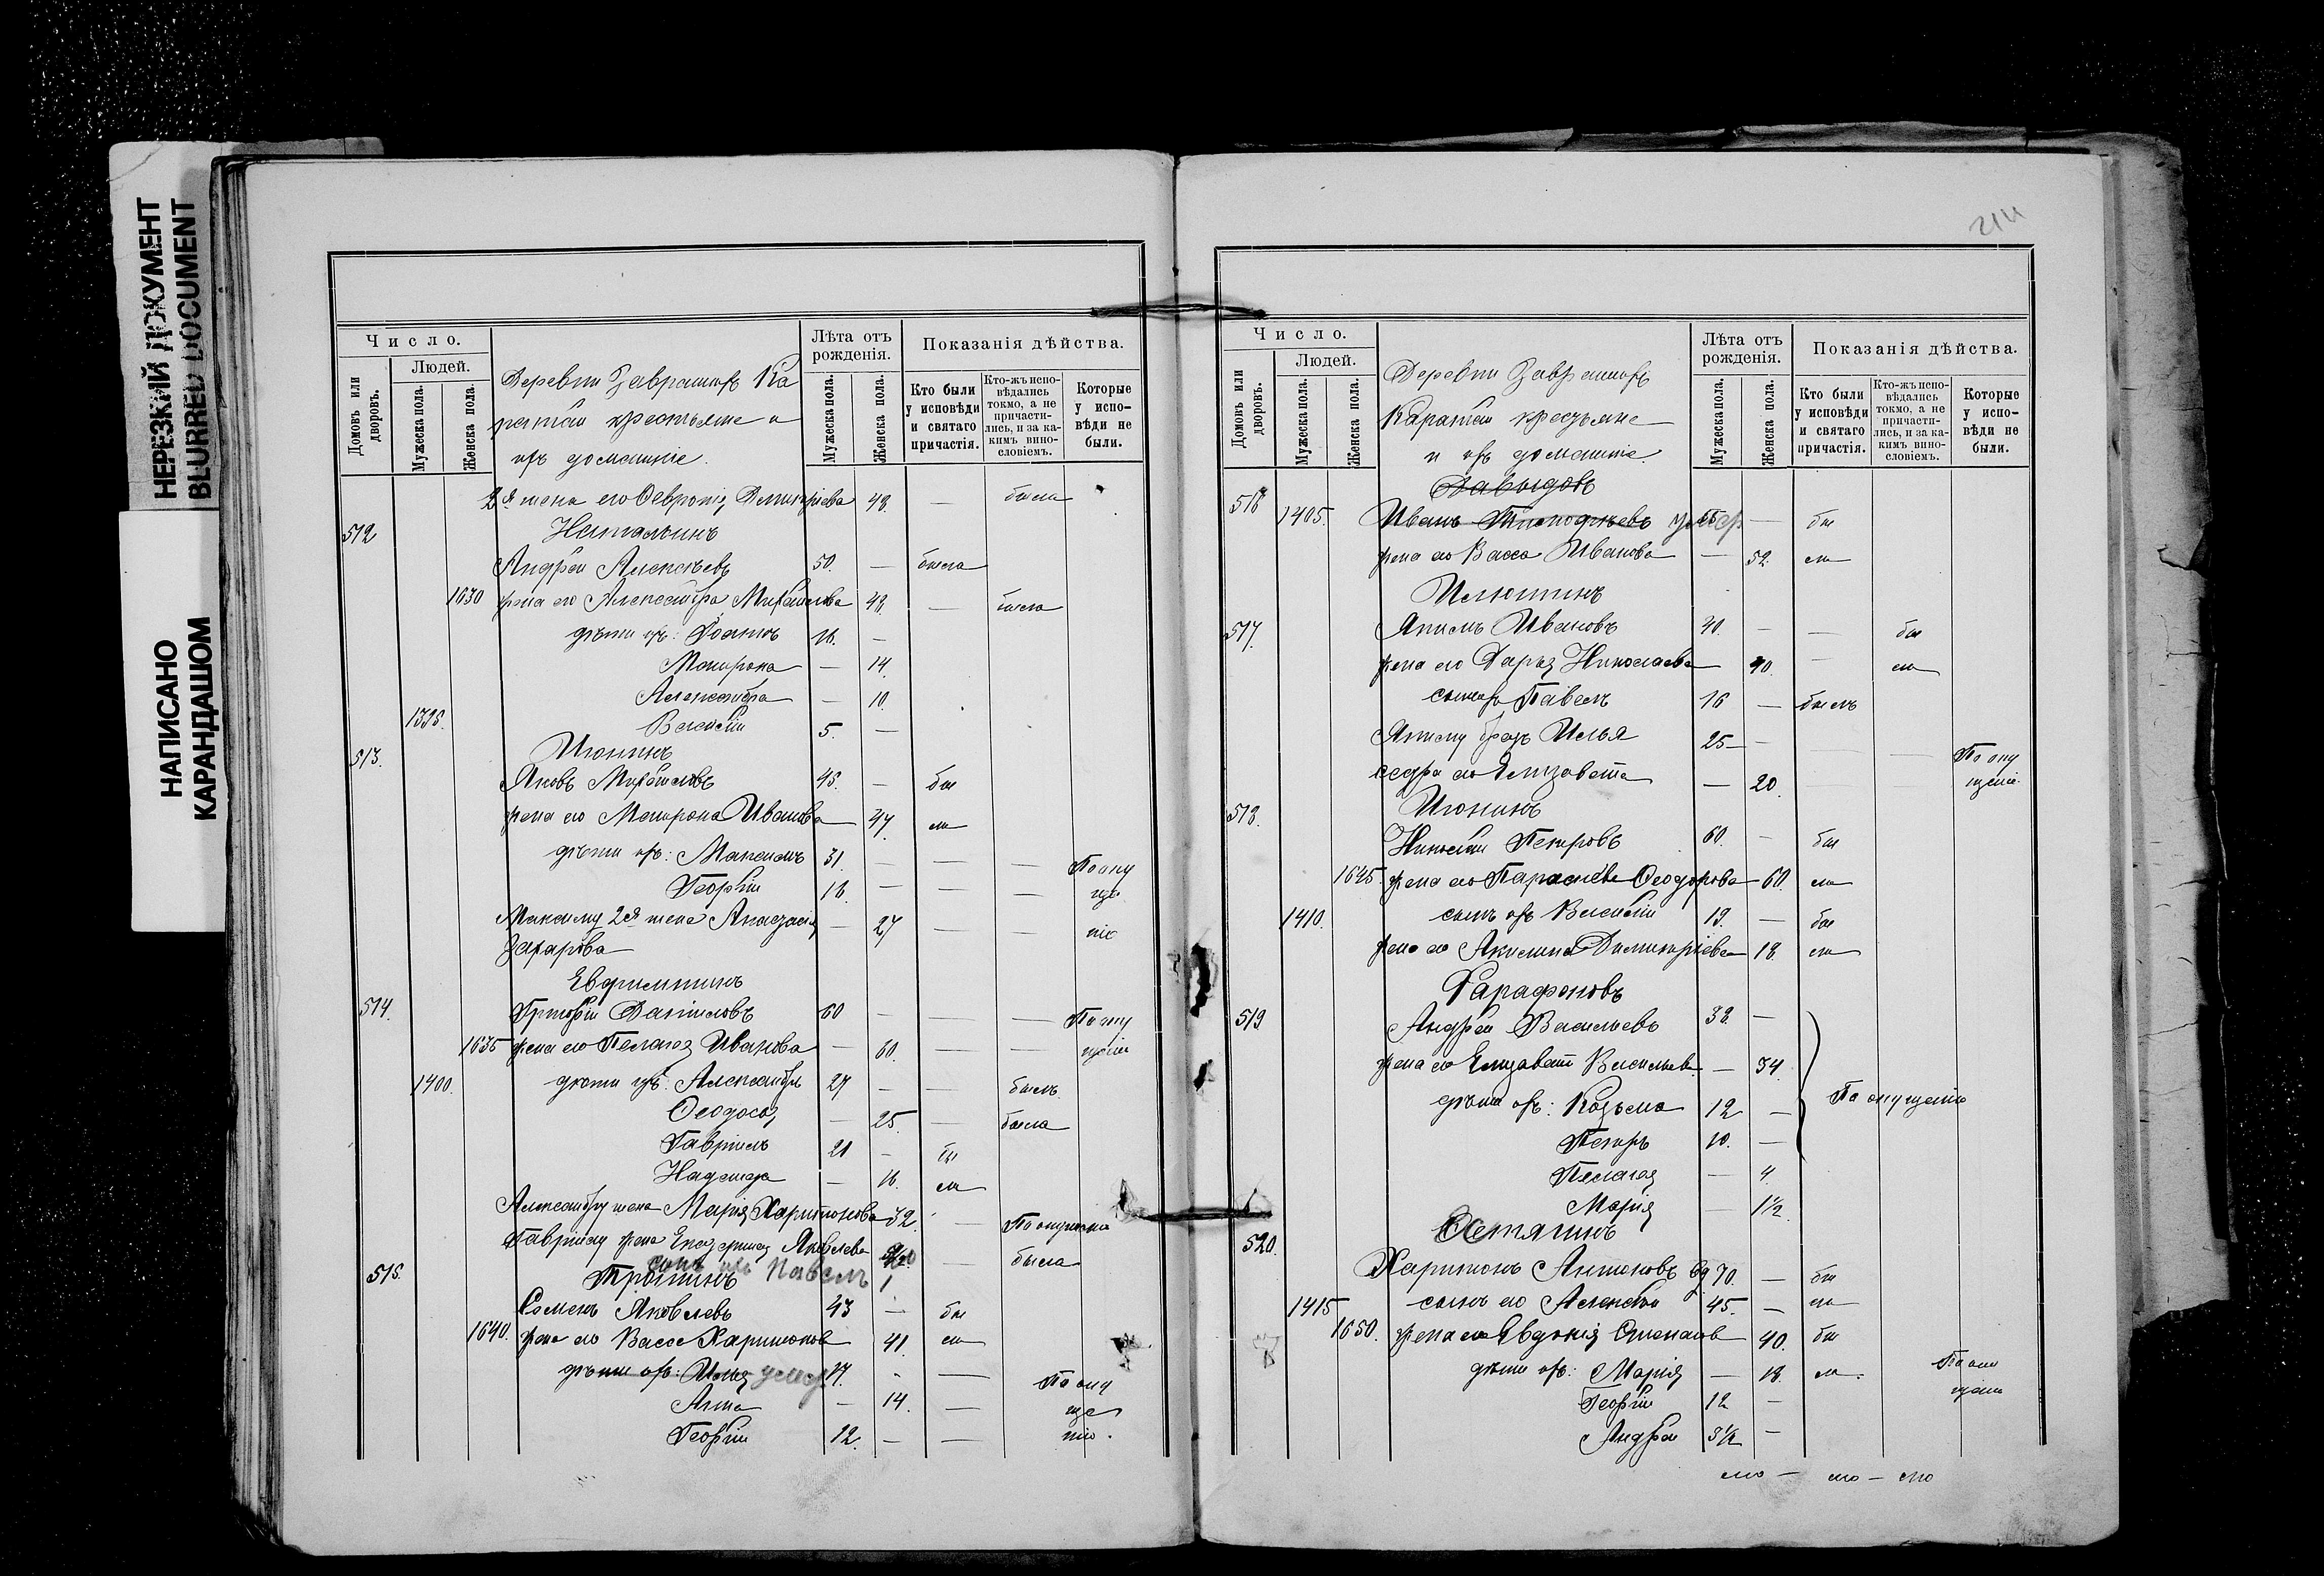 НЕРЕЗКИЙ ДОКУМЕНТ
BLURRED DOCUMENT
НАПИСАНО
КАРАНДАШОМ
Число.
Людей.
Домовъ или дворовъ.
Мужеска пола.
Женска пола.
Деревни Заврашки Ка
ратаи крестьяне и
ихъ домашніе.
Лѣта отъ рожденія.
Мужеска пола.
Женска пола.
Показанія дѣйства.
Кто были у исповѣди и святаго причастія.
Кто-жъ испо-вѣдались токмо, а не причасти-лись, и за ка-кимъ вино-словіемъ.
Которые у испо-вѣди не были.
2я жена его Феврония Димитріева 48. — была
512 Наталъинъ
Андрей Алексѣевъ 50. — была
1630 жена его Александра Михайлова 48. — была
дѣти ихъ: Іоаннъ 16. —
Матрона — 14.
Александра — 10.
1395. Василій 5. —
513. Июнинъ
Яковъ Михайловъ 45. — бы
жена его Матрона Иванова 47. ла
дѣти ихъ: Максимъ 31. — — — По опу
Георгій 18. — — — ще
Максиму 2я жена Анастасія — 27 — — ніе
Захарова
Евдримптинъ
514. Григорій Даніиловъ 60 — — — По опу
1635 жена его Пелагея Иванова — 60. — — щенію
1400. дѣти ихъ: Александръ 27 — — былъ
Феодосія — 25. — была
Гавріилъ 21 — бы
Надежда — 16. ла
Александру жена Марія Харитонова 32. — По опущенію
Гавріилу жена Екатерина Яковлева — была
сынъ ихъ Павелъ 1
515. Трошинъ
Семенъ Яковлевъ 43 — бы
1640. жена его Васса Харитонова 41. ла
дѣти ихъ: Илья умер 17. - — По опу
Анна — 14. — ще
Георгій 12. — — нію.
211
Число.
Людей.
Домовъ или дворовъ.
Мужеска пола.
Женска пола.
Деревни Заврашки
Каратаи крестьяне
и ихъ домашніе.
Лѣта отъ рожденія.
Мужеска пола.
Женска пола.
Показанія дѣйства.
Кто были у исповѣди и святаго причастія.
Кто-жъ испо-вѣдались токмо, а не причасти-лись, и за ка-кимъ вино-словіемъ.
Которые у испо-вѣди не были.
Давыдовъ
516 1405. Иванъ Тимофѣевъ умер 55 — бы
жена его Васса Иванова — 52. ла
Илюшинъ
517. Якимъ Ивановъ 40. — — бы
жена его Дарья Николаева 40. — ла
сынъ ихъ Павелъ 16 — былъ
Якиму братъ Илья 25 — — — — По опу
сестра его Елизавета — 20. — — щенію
518. Июнинъ
Николай Петровъ 60. — бы
1645. жена его Параскева Феодорова 60. ла
1410. сынъ ихъ Василій 19. — бы
жена его Акилина Димитріева 18. ла
Фарафоновъ
519 Андрей Васильевъ 38. —
жена его Елизавета Васильева — 34.
дѣти ихъ: Козьма 12 — По опущенію
Петръ 10. —
Пелагея — 4.
Марія — 1½
520. Остяпинъ
Харитонъ Антоновъ 70. — бы
1415 сынъ его Алексѣй 45. — ли
1650. жена его Евдокія Степанова 40. бы
дѣти ихъ: Марія — 18. ла. По опу
Георгій 12 — щенію
Андрей 3½ —